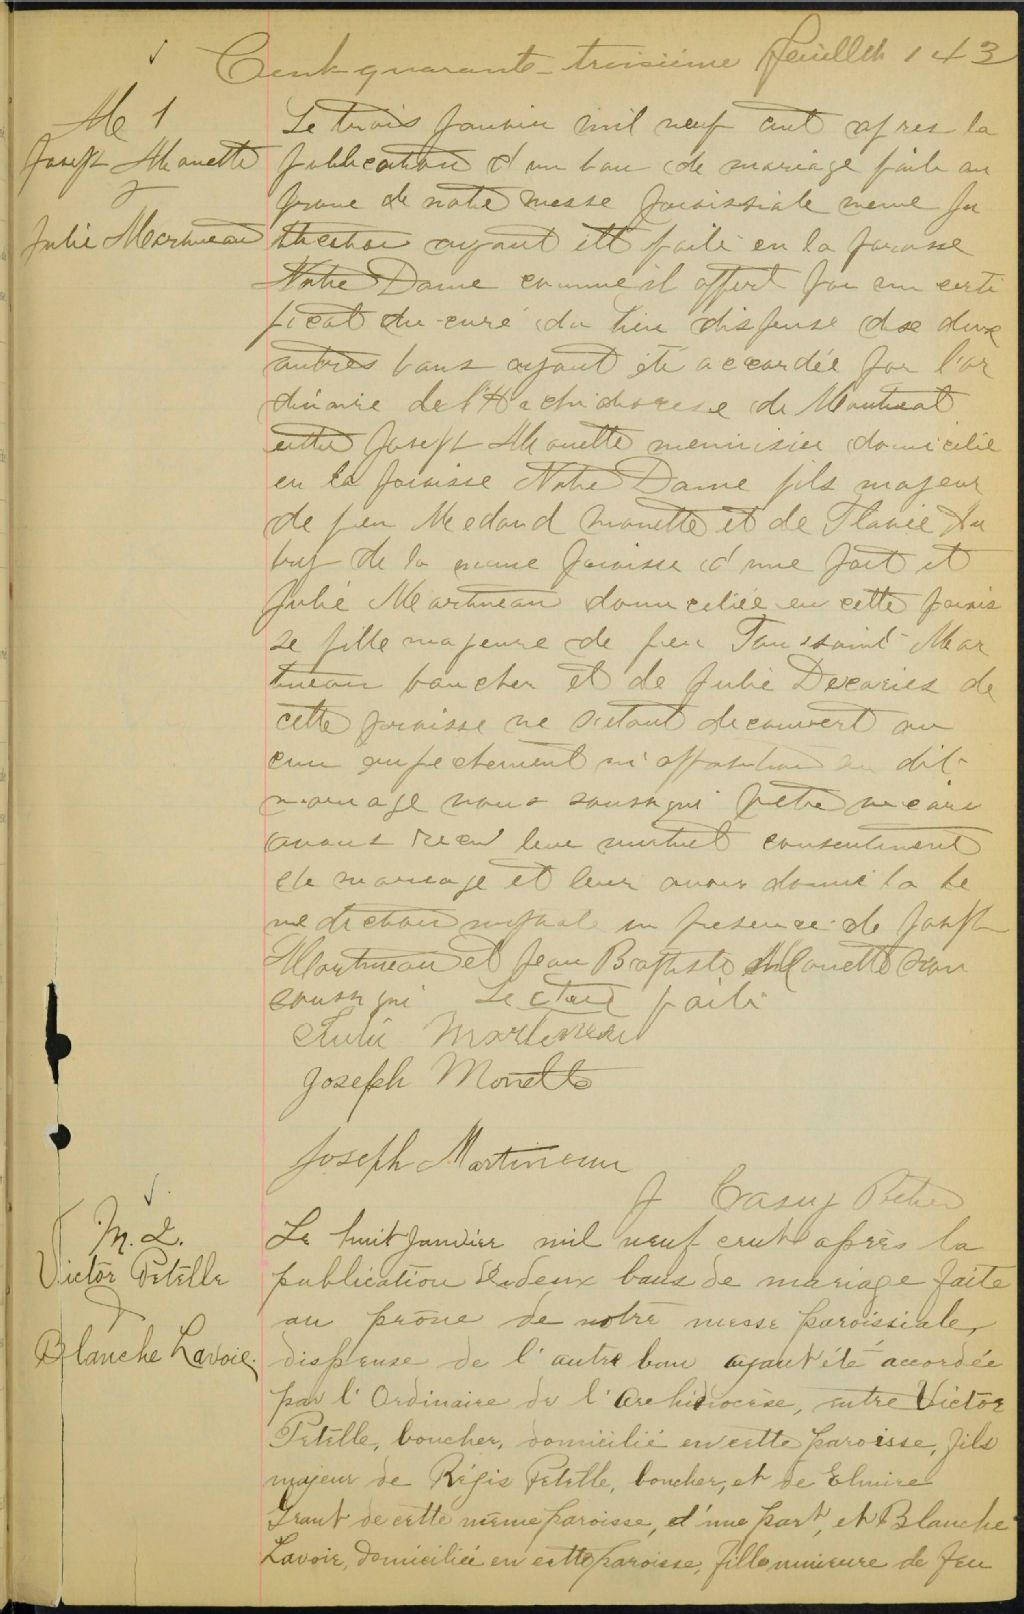 Cent quarante-troisième feuillet 143
M 1
Joseph Monette
&
Julie Martineau
Le trois Janvier mil neuf cent apres la
publication d'un ban de mariage faite au
prone de notre messe paroissiale meme pu
blication ayant été faite en la paroisse
Notre Dame comme il appert par un certi
ficat du curé du lieu dispense de deux
autres bans ayant été accordée par l'or
dinaire de l'Archidiocese de Montreal
entre Joseph Monette menuisier domicilié
en la paroisse Notre Dame fils majeur
de feu Medard Monette et de Flavie Du
buf de la meme paroisse d'une part et
Julie Martineau domiciliée en cette parois
se fille majeure de feu Toussaint Mar
tineau boucher et de Julie Decaries de
cette paroisse ne s'etant decouvert au
cun empechement ni opposition au dit
mariage nous soussigné pretre vicaire
avons recu leur mutuel consentement
de mariage et leur avons donné la be
nediction nuptiale en presence de Joseph
Martineau et Jean Baptiste Monette non
soussigné Lecture faite
Julie Martineau
Joseph Monette
Joseph Martineau
J Casey Ptre
M. 2.
Victor Petelle
&
Blanche Lavoie.
Le huit Janvier mil neuf cent après la
publication de deux bans de mariage faite
au prône de notre messe paroissiale,
dispense de l'autre ban ayant été accordée
par l'Ordinaire de l'Archidiocèse, entre Victor
Petelle, boucher, domicilié en cette paroisse, fils
majeur de Régis Petelle, boucher, et de Elmire
Grant de cette même paroisse, d'une part, et Blanche
Lavoie, domiciliée en cette paroisse, fille mineure de feu